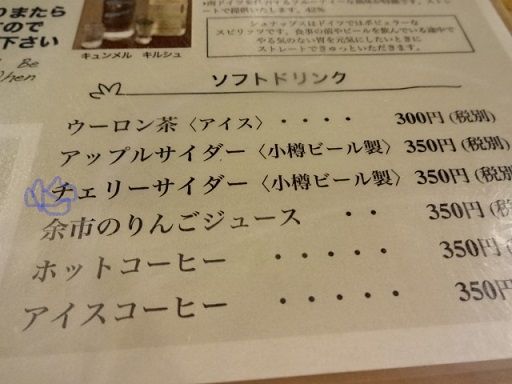 りまたら
ですので
下さい
Be
キュンメル キルシュ
シュナップスはドイツではポピュラーな
スピリッツです。食事の前やビールを飲んでいる途中で
やる気のない胃を元気にしたいときに
ストレートできゅっといただきます。
ソフトドリンク
ウーロン茶〈アイス〉・・・・ 300円(税別)
アップルサイダー〈小樽ビール製〉350円(税別)
チェリーサイダー〈小樽ビール製〉350円(税別
余市のりんごジュース ・・ 350円(税
ホットコーヒー ・・・・・ 350円(
アイスコーヒー ・・・・・ 350円